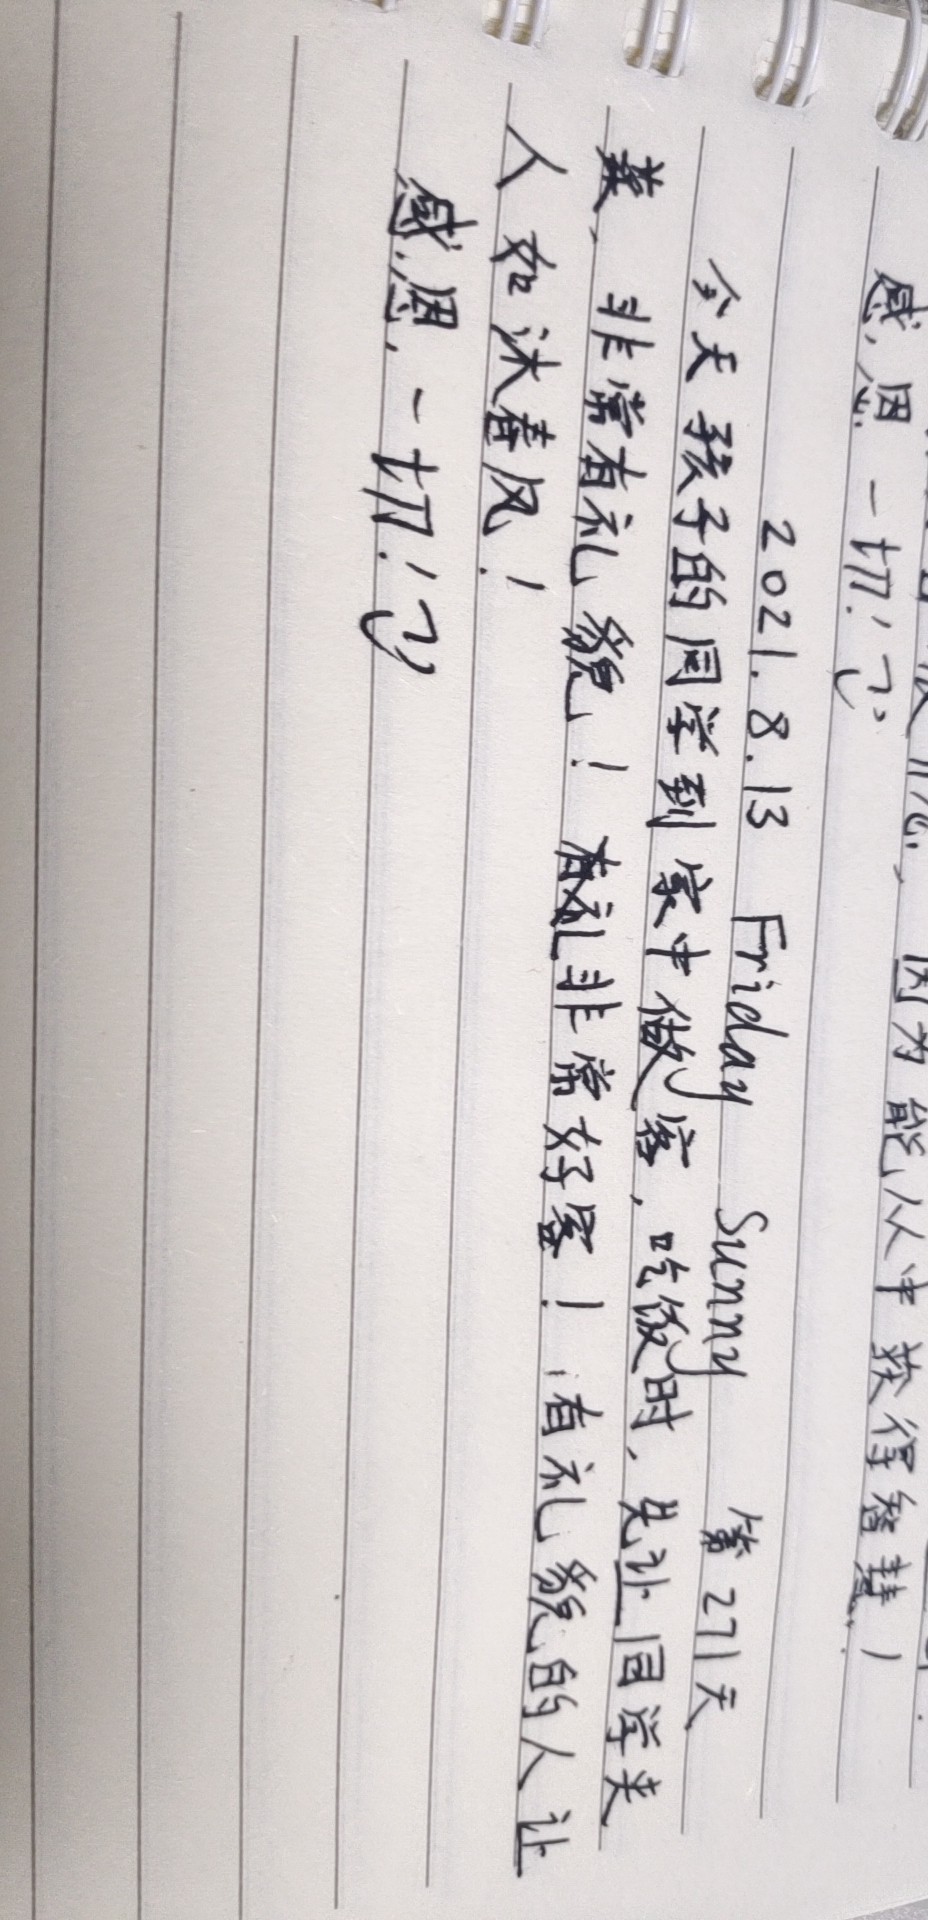 因为能从中获得智慧!
感恩一切!
2021.8.13 Friday Sunny 第271天
今天孩子的同学到家中做客,吃饭时,先让同学夹
菜,非常有礼貌!有礼非常好客!有礼貌的人让
人如沐春风!
感恩一切!